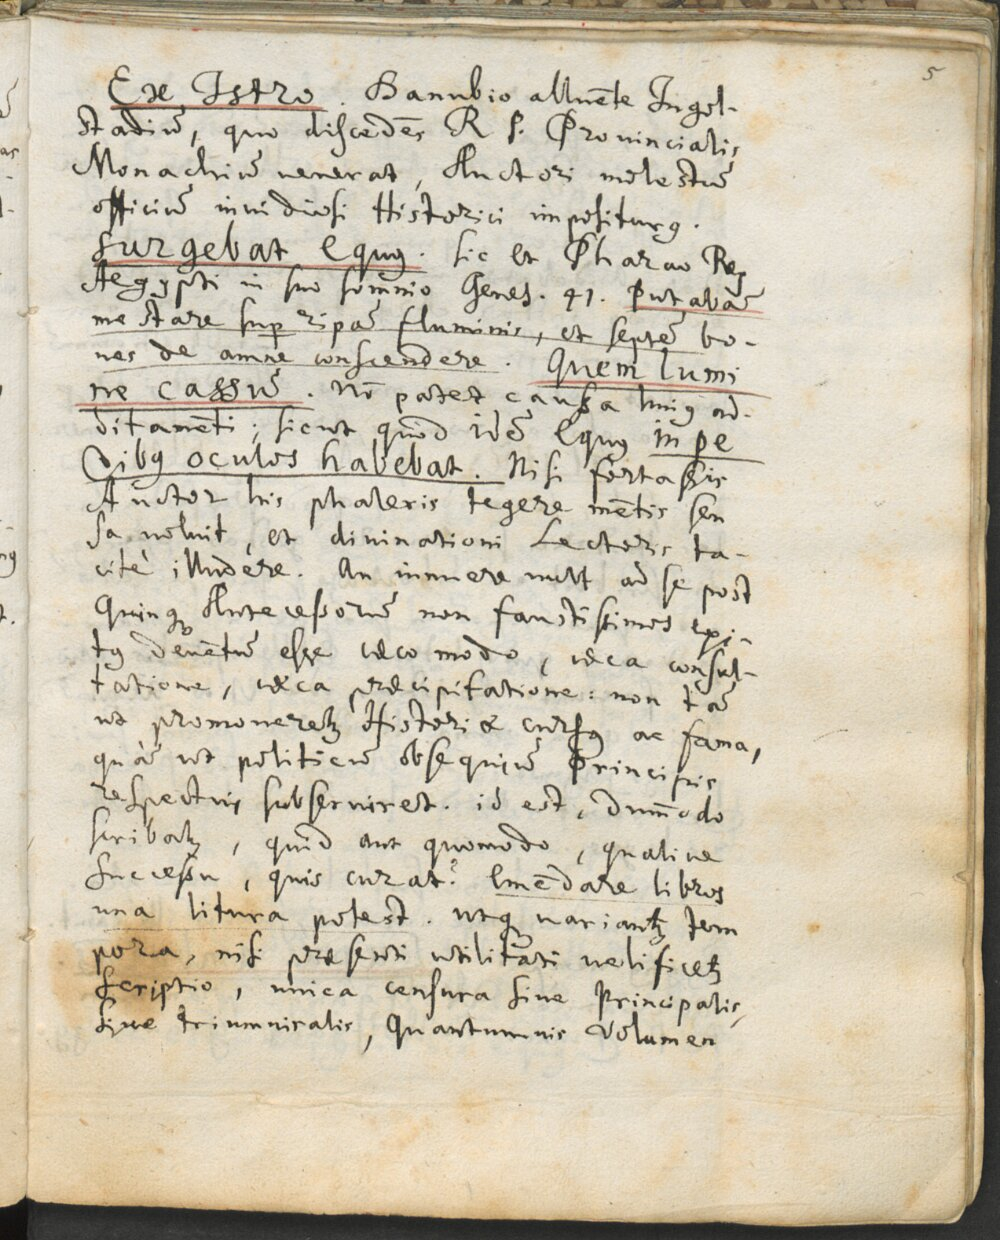 5
Ex Istro. Danubio alluēte Ingol-
stadiū, quo discedēs R. P. Prouincialis
Monachiū uenerat, Auctori molestū
officiū inuidiosi Historici impositurꝯ.
Surgebat Equꝯ. sic et Pharao Rex
Aegypti in suo somnio Genes. 41. Putabā
me stare sup ripā fluminis, et septē bo-
ues de amne conscendere. Quem lumi
ne cassū. Nō patet caussa huiꝯ ad-
ditamēti; sicut quòd idē Equꝯ in pe
dibꝯ oculos habebat. Nisi fortassis
Auctor his phaleris tegere mētis sen
sa uoluit, et diuinationi Lectoris ta-
citè illudere. An innuere uult ad se post
Quinqꝫ Antecessorū non faustissimos exi-
tꝯ deuētū esse cæco modo, cæca consul-
tatione, cæca præcipitatione: non tā
ut promoueretꝫ Historiæ cursꝯ ac fama,
quàm ut politicū obsequiū Principis
respectui subseruiret. id est, dum̄odo
scribatꝫ, quid aut quomodo, qualiue
successu, quis curat? Emēdare libros
una litura potest. utqꝫ uariantꝫ tem
pora, nisi præsenti utilitati uelificetꝫ
scriptio, unica censura siue Principalis,
siue triumuiralis, quantumuis Volumen